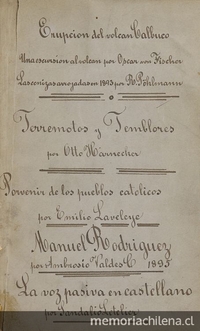 Erupcion del volcan Calbuco
Una escursion al volcan por Oscar von Fischer
Las cenizas arrojadas en 1893 por R. Pöhlmann
Terremotos y Temblores
por Otto Harnecker
Porvenir de los pueblos catolicos
por Emilio Laveleye
Manuel Rodriguez
por Ambrosio Valdes C 1893
La voz pasiva en castellano
por Sandalio Letelier
memoriachilena.cl